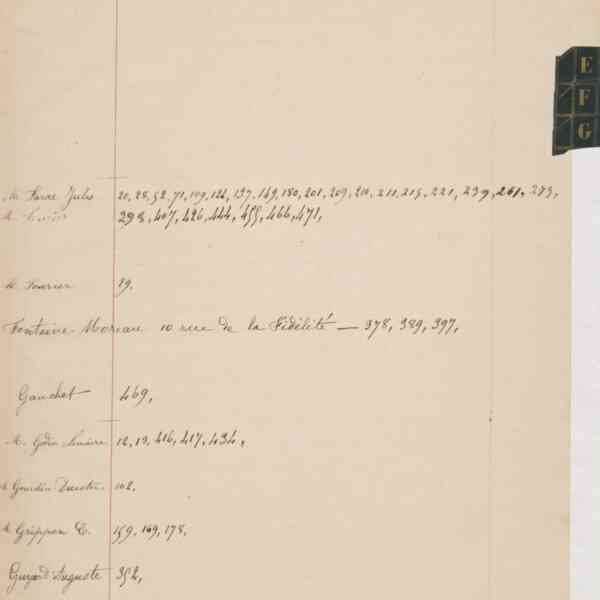 E
F
G
M. Favre Jules 20, 28, 52, 71, 109, 126, 137, 149, 180, 201, 209, 210, 211, 215, 221, 239, 261, 273,
298, 407, 426, 444, 455, 466, 471,
M. Fourier 19.
Fontaine-Moreau 10 rue de la Fidélité — 378, 389, 397,
Gauchet 469,
M. Godin Lemaire 12, 13, 416, 417, 434,
M. Gourdin 102.
M. Grippon E. 159, 169, 178.
Guyard Auguste 352,